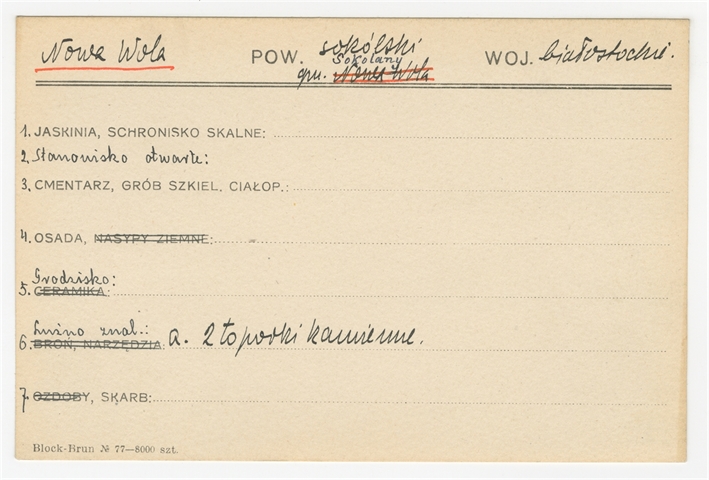 Nowa Wola POW. sokólski WOJ. białostockie.
Sokolany
gm. Nowa Wola
1. JASKINIA, SCHRONISKO SKALNE:
2. Stanowisko otwarte:
3. CMENTARZ, GRÓB SZKIEL. CIAŁOP.:
4. OSADA, NASYPY ZIEMNE:
Grodzisko:
5. CERAMIKA:
Luźno znal.:
6. BROŃ, NARZĘDZIA: a. 2 toporki kamienne.
7. OZDOBY, SKARB:
Block-Brun № 77—8000 szt.